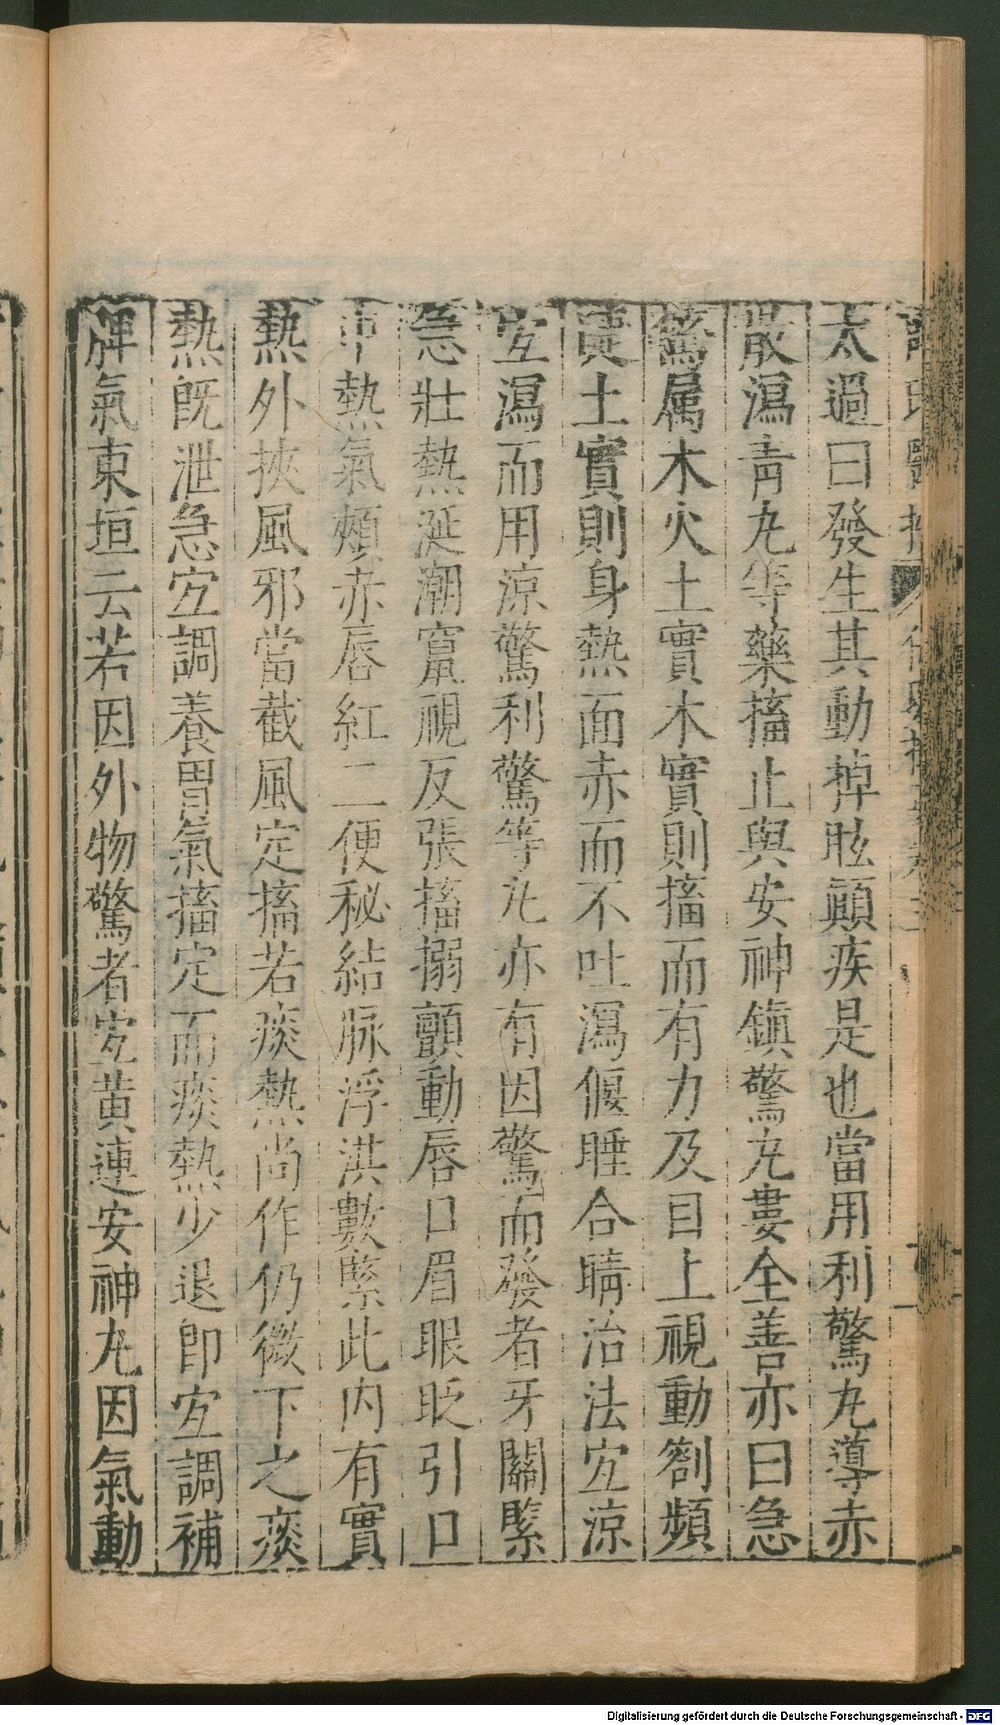 太過曰發生其動掉眩顚疾是也當用利驚丸導赤
散瀉靑丸等藥搐止與安神鎭驚丸婁全善亦曰急
驚属木火土實木實則搐而有力及目上視動劄頻
睫土實則身熱面赤而不吐瀉偃睡合睛治法宜涼
宜瀉而用涼驚利驚等丸亦有因驚而發者牙關緊
急壯熱涎潮竄視反張搐搦顫動唇口眉眼眨引口
中熱氣頰赤唇紅二便秘結脉浮洪數緊此内有實
熱外挾風邪當截風定搐若痰熱尚作仍微下之痰
熱旣泄急宜調養胃氣搐定而痰熱少退卽宜調補
脾氣東垣云若因外物驚者宜黄連安神丸因氣動
Digitalisierung gefördert durch die Deutsche Forschungsgemeinschaft - DFG